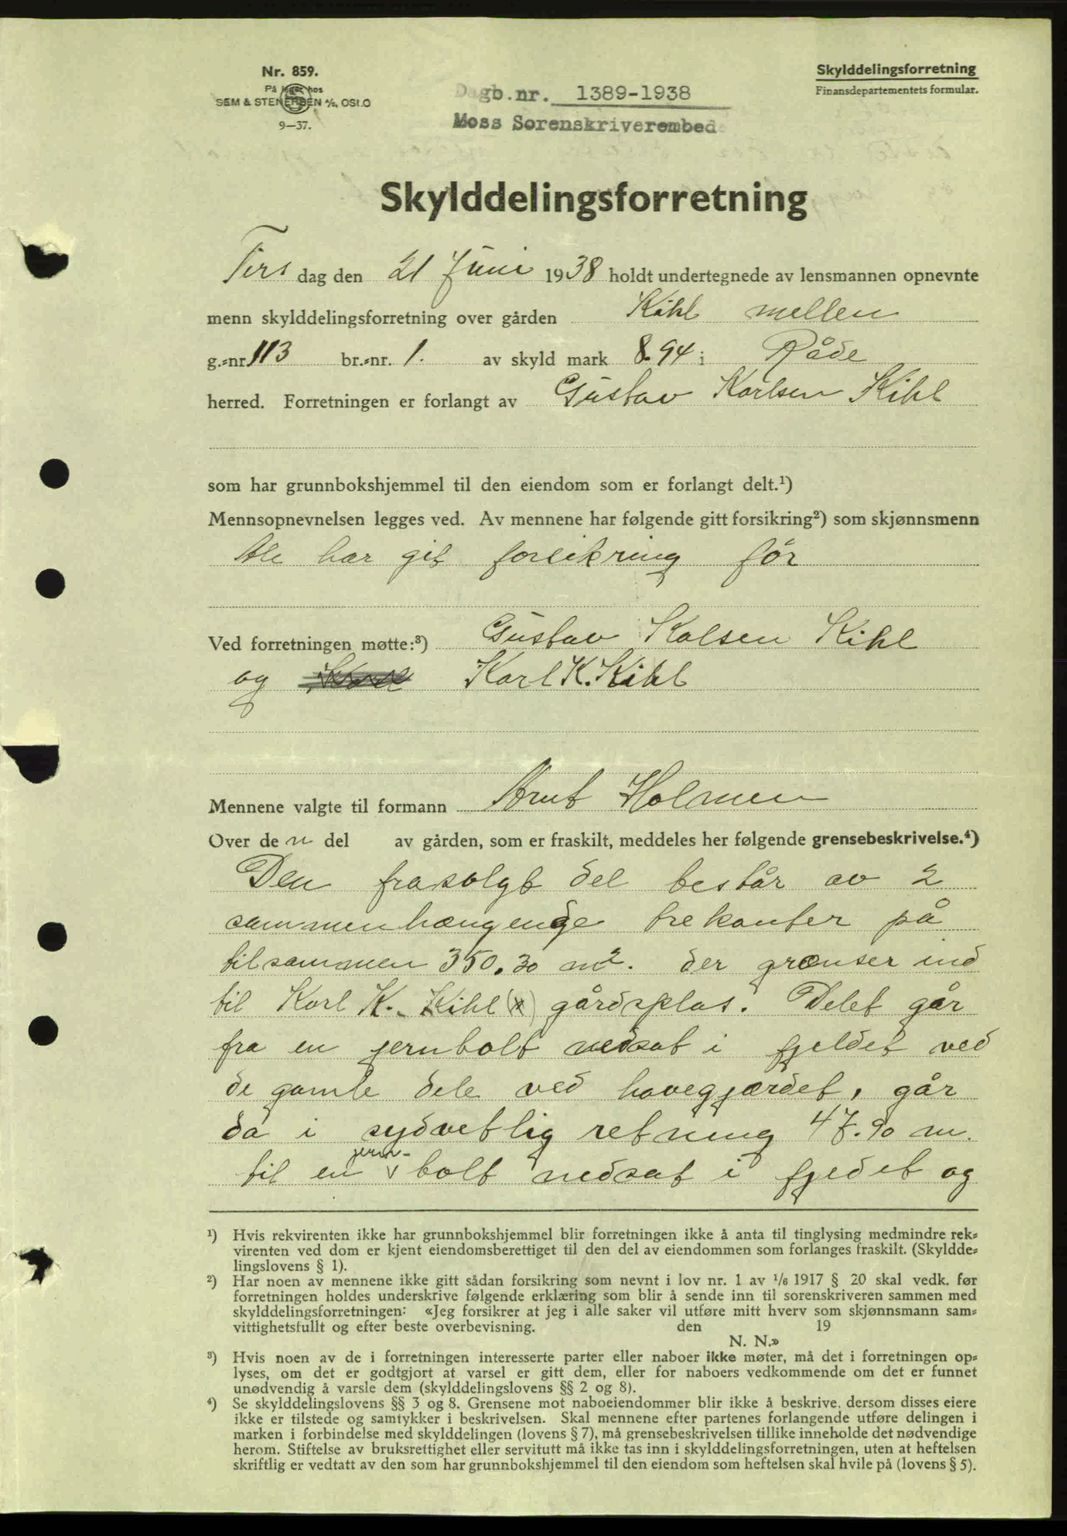 Nr. 859.
På lager hos
SEM & STENERSEN A/S, OSLO
9—37.
Dagb.nr. 1389-1938
Moss Sorenskriverembede
Skylddelingsforretning
Finansdepartementets formular.
Skylddelingsforretning
Tirs dag den 21 Juni 1938 holdt undertegnede av lensmannen opnevnte
menn skylddelingsforretning over gården Kihl mellen
g.-nr. 113 br.-nr. 1. av skyld mark 8.94 i Råde
herred. Forretningen er forlangt av Gustav Karlsen Kihl
som har grunnbokshjemmel til den eiendom som er forlangt delt.¹)
Mennsopnevnelsen legges ved. Av mennene har følgende gitt forsikring²) som skjønnsmenn
Ale har git forsikring før
Ved forretningen møtte:³) Gustav Kalsen Kihl
og Karl K. Kihl
Mennene valgte til formann Holmen
Over de n del av gården, som er fraskilt, meddeles her følgende grensebeskrivelse.⁴)
Den frasolgt del består av 2
sammenhængenge trekanter på
tilsammen 350.30 m². der grænser ind
til Karl K. Kihl (x) gårdsplas. Delet går
fra en jernbolt nedsat i fjeldet ved
de gamle dele ved havegjærdet, går
da i sydvetlig retning 47.90 m.
til en jern- bolt nedsat i fjedet og
¹) Hvis rekvirenten ikke har grunnbokshjemmel blir forretningen ikke å anta til tinglysing medmindre rek-
virenten ved dom er kjent eiendomsberettiget til den del av eiendommen som forlanges fraskilt. (Skyldde-
lingslovens § 1).
²) Har noen av mennene ikke gitt sådan forsikring som nevnt i lov nr. 1 av ¹/₆ 1917 § 20 skal vedk. før
forretningen holdes underskrive følgende erklæring som blir å sende inn til sorenskriveren sammen med
skylddelingsforretningen: «Jeg forsikrer at jeg i alle saker vil utføre mitt hverv som skjønnsmann sam-
vittighetsfullt og efter beste overbevisning. den 19
N. N.»
³) Hvis noen av de i forretningen interesserte parter eller naboer ikke møter, må det i forretningen op-
lyses, om det er godtgjort at varsel er gitt dem, eller for naboers vedkommende om det er funnet
unødvendig å varsle dem (skylddelingslovens §§ 2 og 8).
⁴) Se skylddelingslovens §§ 3 og 8. Grensene mot naboeiendommer blir ikke å beskrive, dersom disses eiere
ikke er tilstede og samtykker i beskrivelsen. Skal mennene efter partenes forlangende utføre delingen i
marken i forbindelse med skylddelingen (lovens § 7), må grensebeskrivelsen tillike inneholde det nødvendige
herom. Stiftelse av bruksrettighet eller servitutt må ikke tas inn i skylddelingsforretningen, uten at heftelsen
skriftlig er vedtatt av den som har grunnbokshjemmel til den eiendom som heftelsen skal hvile på (lovens § 5).